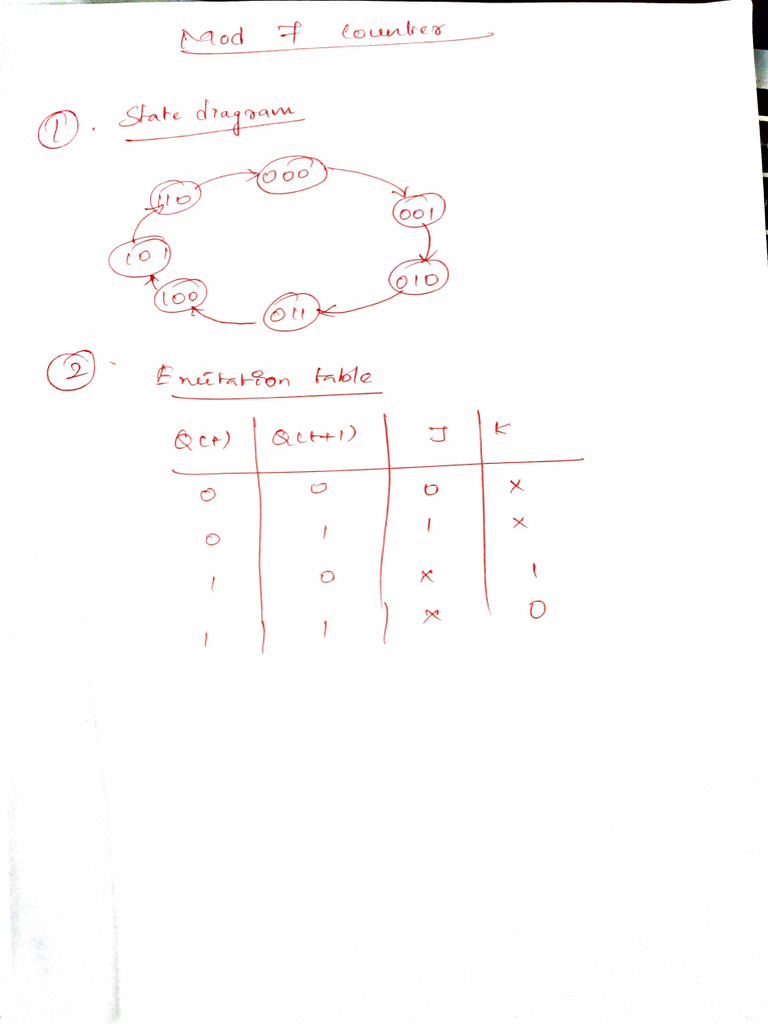 Mod 7 counter
1. State diagram
000
110
001
101
010
100
011
2. Excitation table
Q(t) Q(t+1) J K
0 0 0 x
0 1 1 x
1 0 x 1
1 1 x 0